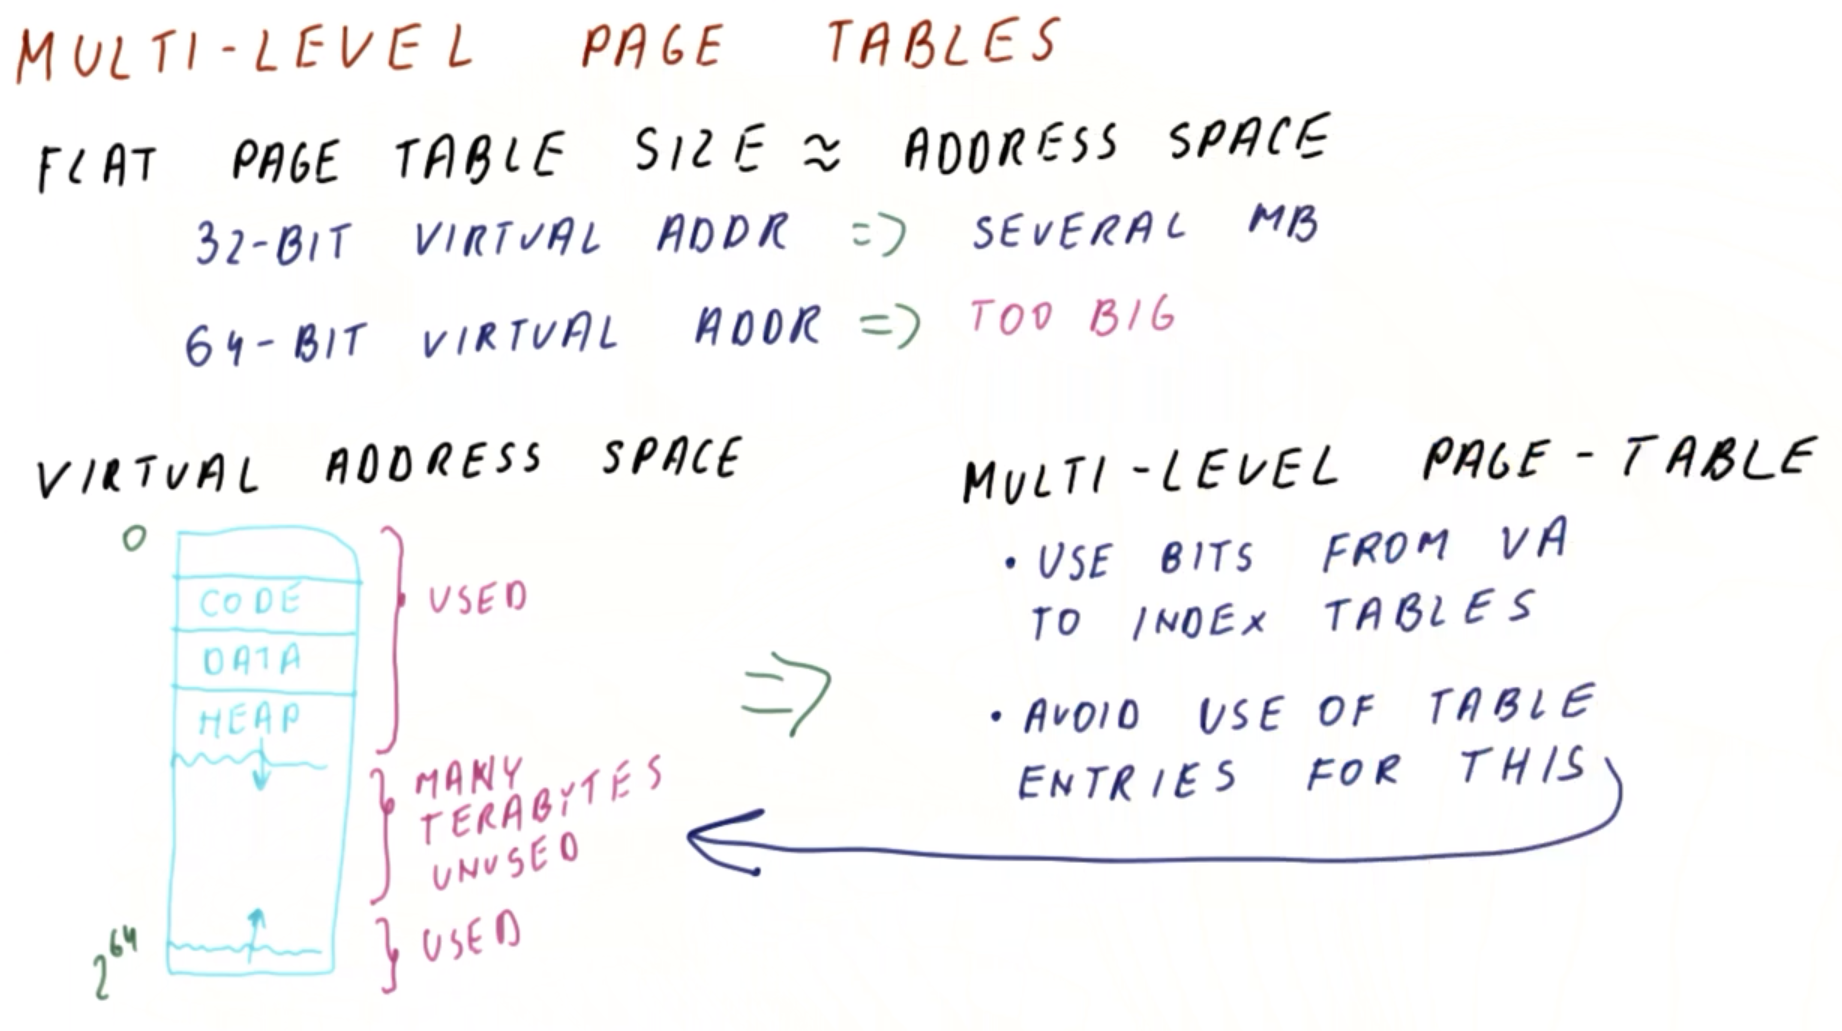 MULTI-LEVEL PAGE TABLES
FLAT PAGE TABLE SIZE ≈ ADDRESS SPACE
32-BIT VIRTUAL ADDR => SEVERAL MB
64-BIT VIRTUAL ADDR => TOO BIG
VIRTUAL ADDRESS SPACE
0
CODE
DATA
HEAP
2^64
USED
MANY
TERABYTES
UNUSED
USED
=>
MULTI-LEVEL PAGE-TABLE
• USE BITS FROM VA
TO INDEX TABLES
• AVOID USE OF TABLE
ENTRIES FOR THIS